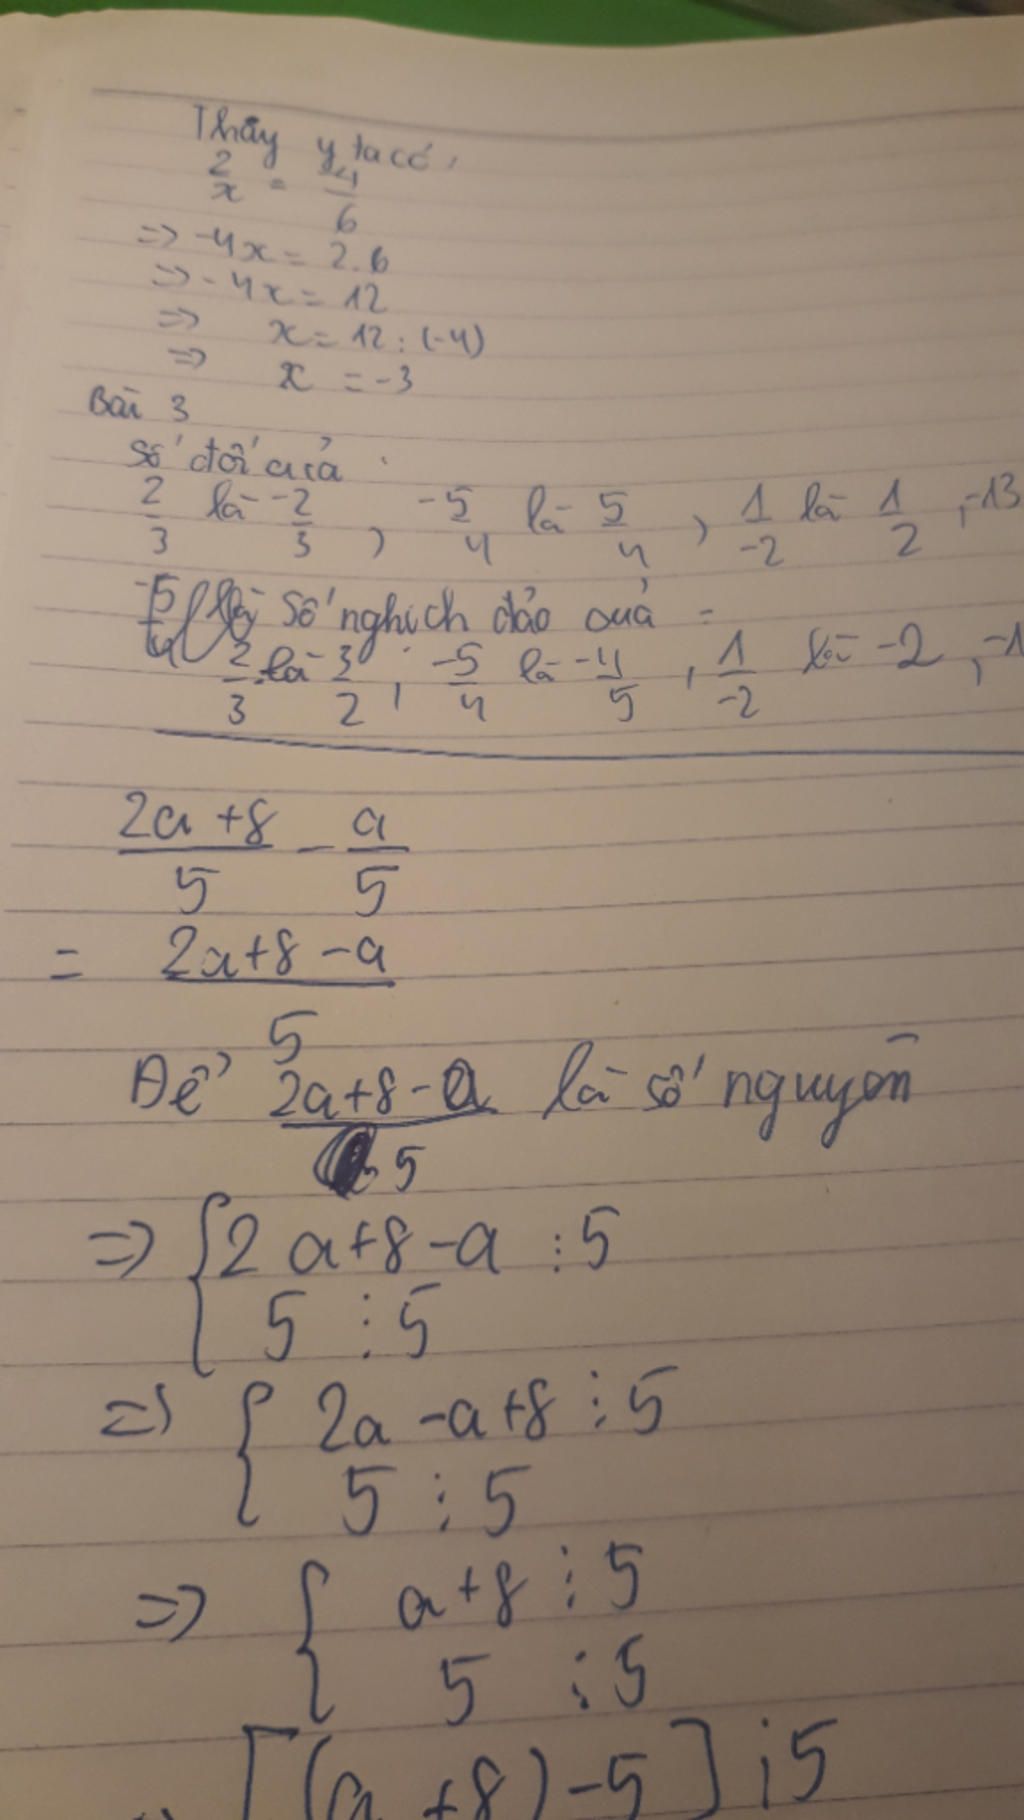 Thấy y ta có,
2/x = -4/6
=> -4x = 2.6
=> -4x = 12
=> x = 12 : (-4)
=> x = -3
Bài 3
Số đối của
2/3 là -2/3 , -5/4 là 5/4 , 1/-2 là 1/2 , -13
số nghịch đảo của =
2/3 là 3/2 , -5/4 là -4/5 , 1/-2 là -2 , -1
(2a+8)/5 - a/5
= (2a+8-a)/5
Để (2a+8-a)/5 là số nguyên
=> { 2a+8-a ⋮ 5
5 ⋮ 5
=> { 2a-a+8 ⋮ 5
5 ⋮ 5
=> { a+8 ⋮ 5
5 ⋮ 5
[(a+8)-5] ⋮ 5